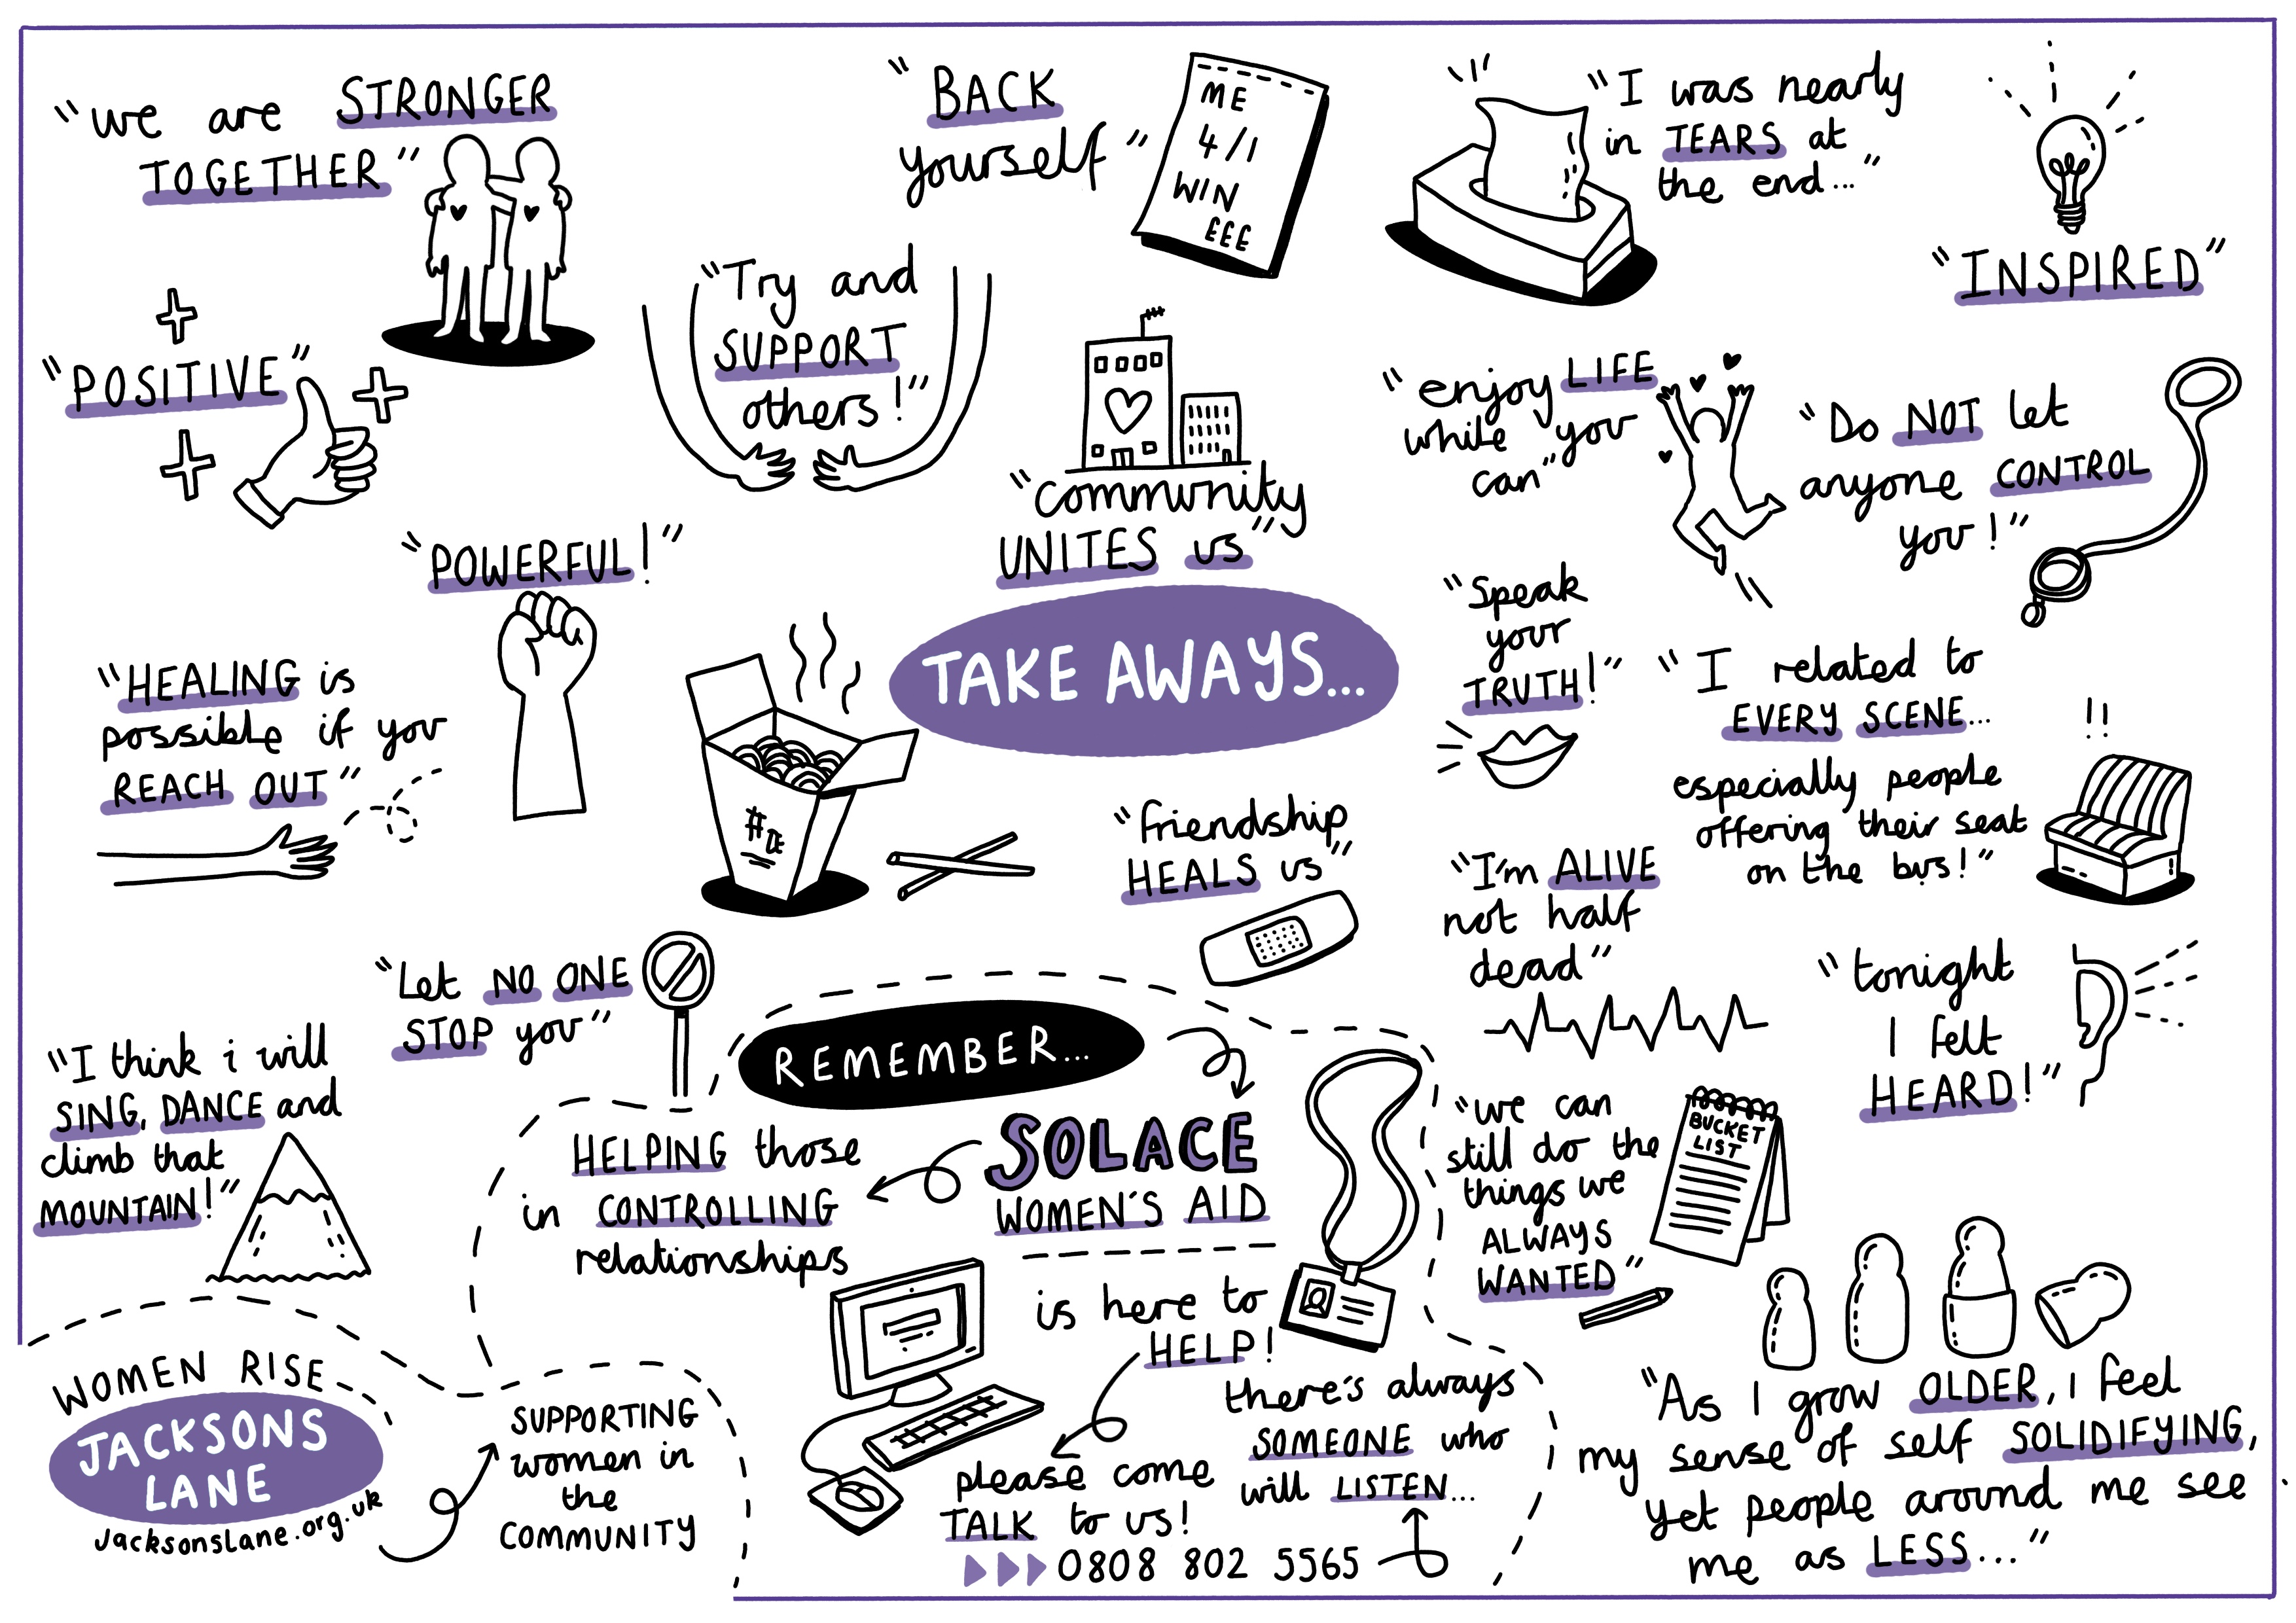 "we are STRONGER
TOGETHER"
"BACK
yourself"
ME
4/1
WIN
£££
"I was nearly
in TEARS at
the end..."
"INSPIRED"
"POSITIVE"
"Try and
SUPPORT
others!"
"community
UNITES us"
"enjoy LIFE
while you
can"
"Do NOT let
anyone CONTROL
you!"
"POWERFUL!"
TAKE AWAYS...
"Speak
your
TRUTH!"
"HEALING is
possible if you
REACH OUT"
"I related to
EVERY SCENE...
especially people
offering their seat
on the bus!"
!!
"friendship
HEALS us"
"I'm ALIVE
not half
dead"
"Let NO ONE
STOP you"
"tonight
I felt
HEARD!"
"I think i will
SING, DANCE and
climb that
MOUNTAIN!"
REMEMBER...
SOLACE
WOMEN'S AID
HELPING those
in CONTROLLING
relationships
is here to
HELP!
please come
TALK to us!
there's always
SOMEONE who
will LISTEN...
0808 802 5565
"we can
still do the
things we
ALWAYS
WANTED"
BUCKET
LIST
"As I grow OLDER, i feel
my sense of self SOLIDIFYING,
yet people around me see
me as LESS..."
WOMEN RISE
JACKSONS
LANE
jacksonslane.org.uk
SUPPORTING
women in
the
COMMUNITY